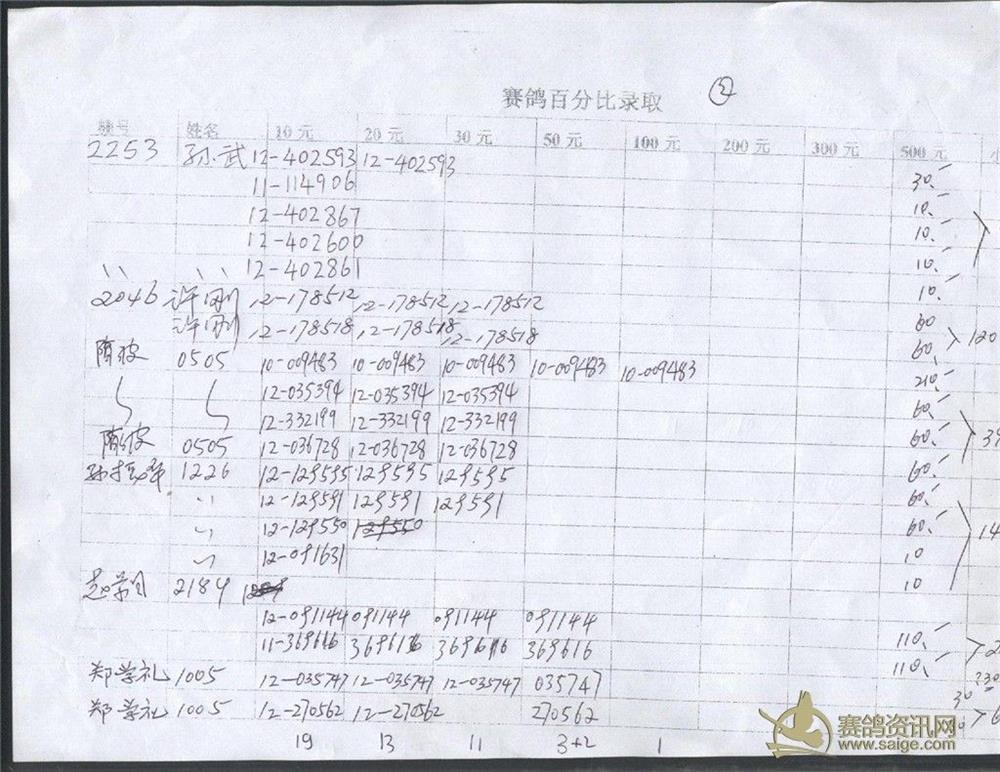 赛鸽百分比录取 ②
棚号 姓名 10 元 20 元 30 元 50 元 100 元 200 元 300 元 500 元 小
2253 孙武 12-402593 12-402593 30.
11-114906 10.
12-402867 10.
12-402600 10.
12-402861 10.
2046 许刚 12-178512 12-178512 12-178512 60
许刚 12-178518 12-178518 12-178518 60. 120
陈波 0505 10-009483 10-009483 10-009483 10-009483 10-009483 210.
12-035394 12-035394 12-035394 60.
12-332199 12-332199 12-332199 60. 39
陈波 0505 12-036728 12-036728 12-036728 60.
1226 12-129595 129595 129595 60.
12-129591 129591 129591 60.
12-129550 129550 10 14
12-091631 10
赵学 2184
12-091144 091144 091144 091144 110.
11-369616 369616 369616 369616 110. 2
郑学礼 1005 12-035747 12-035747 12-035747 035747 230
郑学礼 1005 12-270562 12-270562 270562 30 6
19 13 11 3+2 1
赛鸽资讯网
www.saige.com